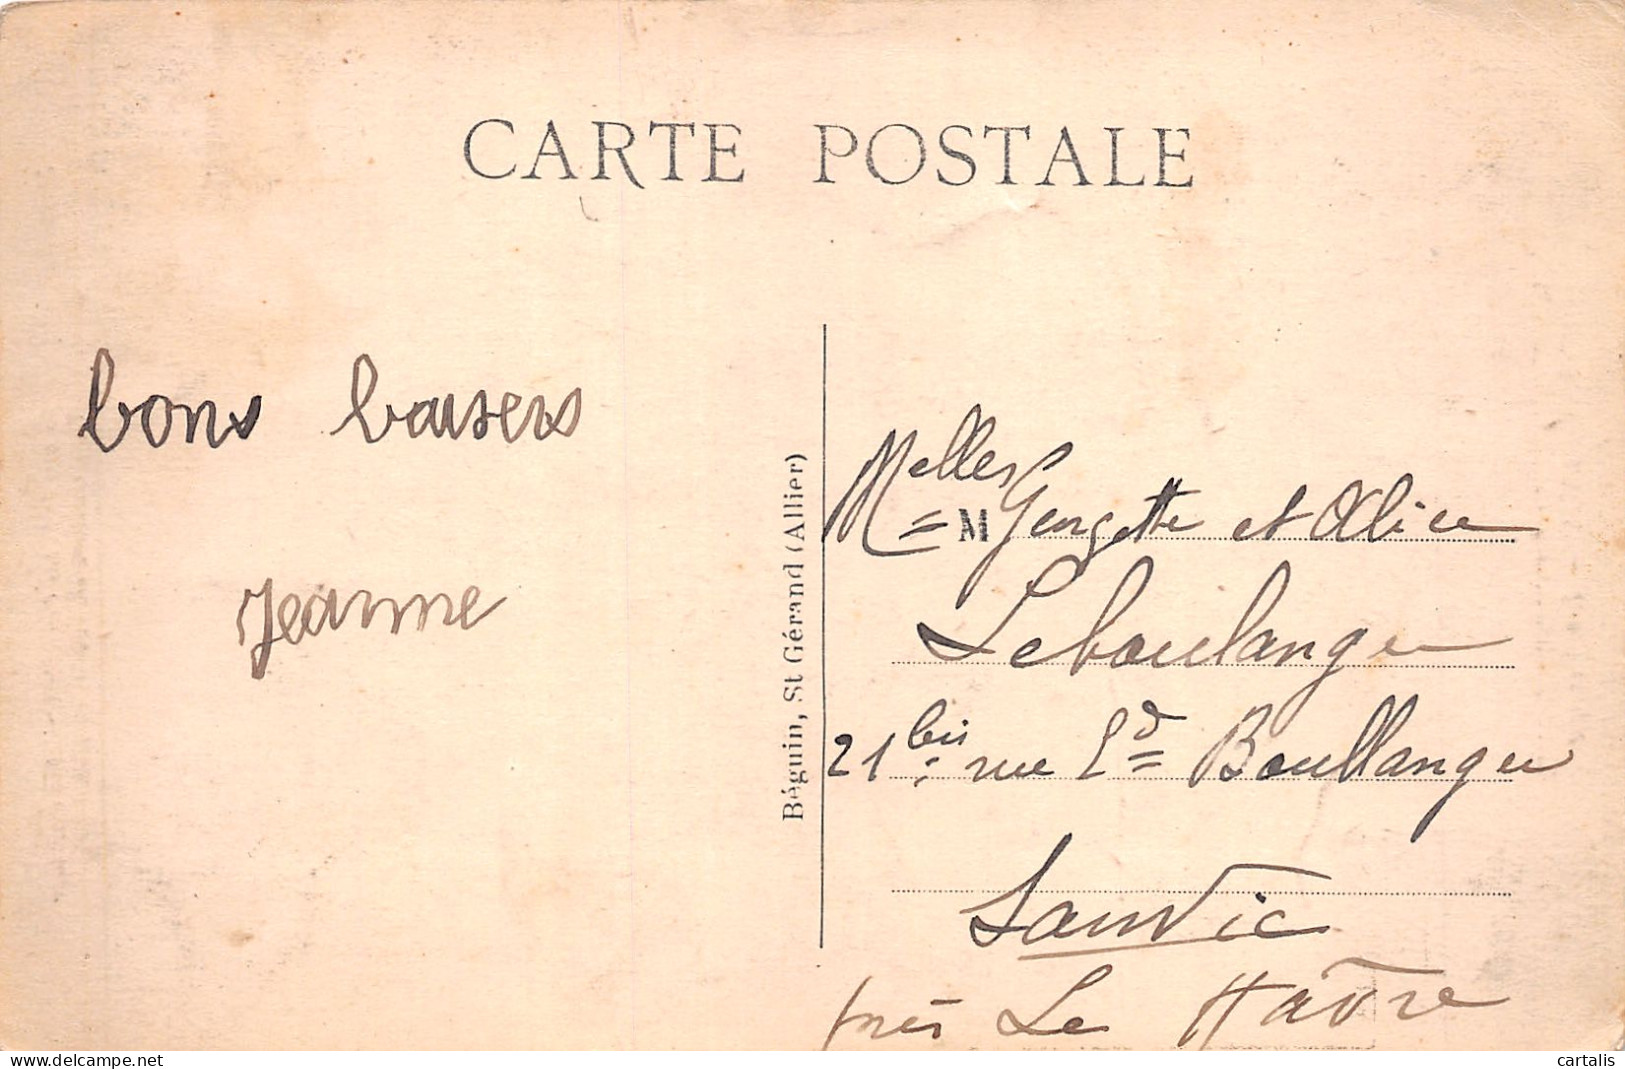 CARTE POSTALE
bons baisers
Jeanne
Béguin, St Gérand (Allier)
Melles M Georgette et Alice
Leboulanger
21 bis rue Ed Boullanger
Sanvic
près Le Hâvre
cartalis
www.delcampe.net